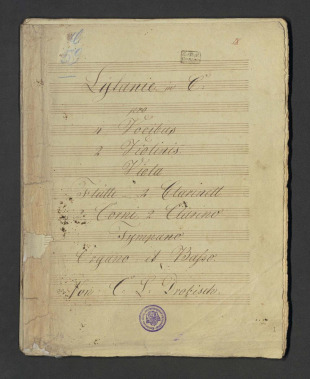 Lytanie in C.
pro
4 Vocibus
2 Violinis
Viola
Flutte 2 Clarinett
2 Corni 2 Clarino
Tympano
Organo et Basso.
Von C. L. Drobisch.